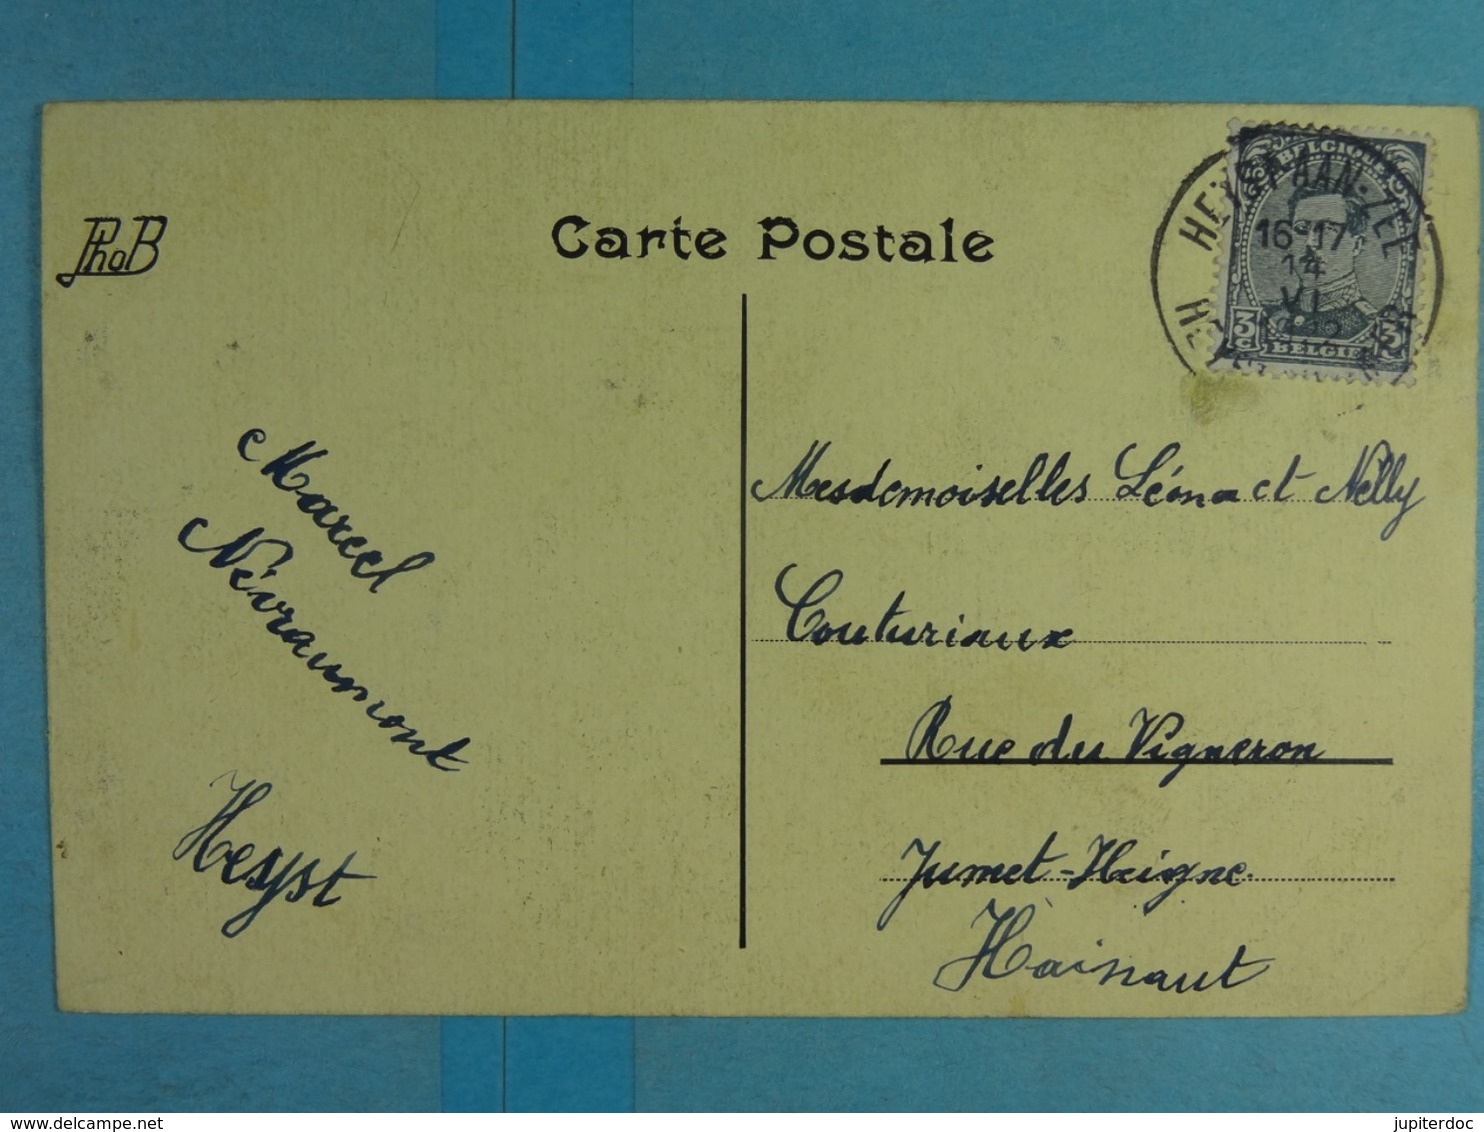 PhoB
Carte Postale
BELGIQUE
HEYST-AAN-ZEE
16-17
14
VI
3 C
3 C
BELGIE
HEYST
MER
Marcel
Névraumont
Heyst
Mesdemoiselles Léona et Nelly
Couturiaux
Rue du Vigneron
Jumet-Heigne.
Hainaut
delcampe.net
jupiterdoc